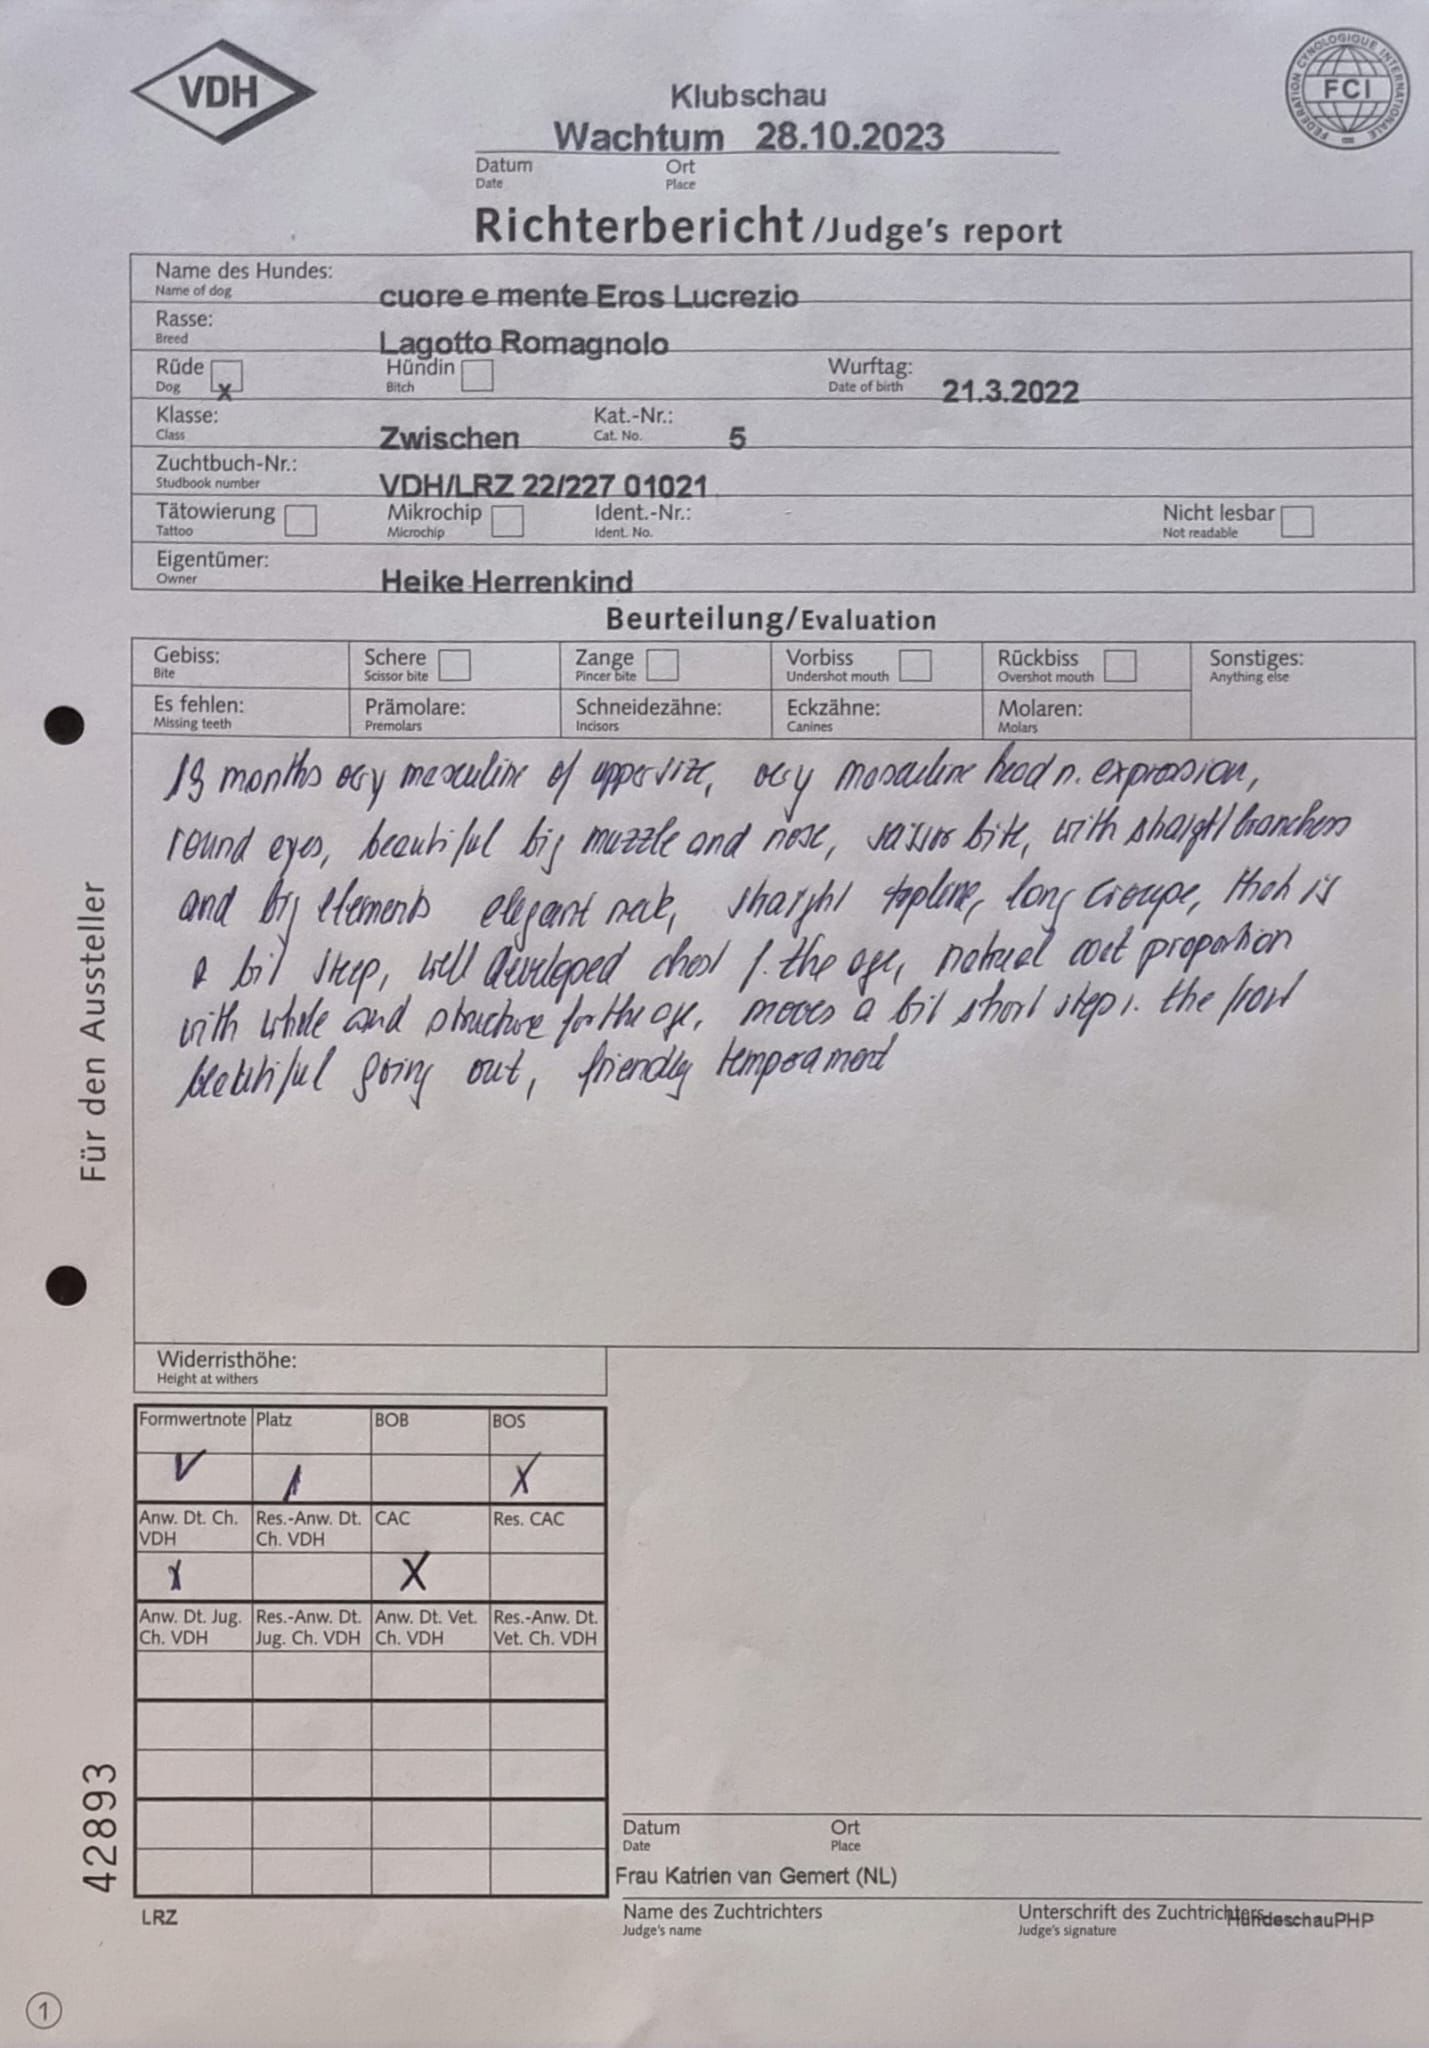 VDH
FEDERATION CYNOLOGIQUE INTERNATIONALE
FCI
Klubschau
Wachtum 28.10.2023
Datum Ort
Date Place
Richterbericht/Judge's report
Name des Hundes:
Name of dog
cuore e mente Eros Lucrezio
Rasse:
Breed
Lagotto Romagnolo
Rüde Hündin Wurftag:
Dog x Bitch Date of birth 21.3.2022
Klasse: Kat.-Nr.:
Class Zwischen Cat. No. 5
Zuchtbuch-Nr.:
Studbook number VDH/LRZ 22/227 01021
Tätowierung Mikrochip Ident.-Nr.: Nicht lesbar
Tattoo Microchip Ident. No. Not readable
Eigentümer:
Owner Heike Herrenkind
Beurteilung/Evaluation
Gebiss: Schere Zange Vorbiss Rückbiss Sonstiges:
Bite Scissor bite Pincer bite Undershot mouth Overshot mouth Anything else
Es fehlen: Prämolare: Schneidezähne: Eckzähne: Molaren:
Missing teeth Premolars Incisors Canines Molars
19 months very masculine of upper size, very masculine head n. expression,
round eyes, beautiful big muzzle and nose, bite, with
and big elements elegant neck, topline, long croupe, that is
a bit steep, well developed chest f. the age, natural coat proportion
with whole and structure for the age, moves a bit short step i. the front
beautiful going out, friendly
Für den Aussteller
Widerristhöhe:
Height at withers
Formwertnote Platz BOB BOS
V 1 X
Anw. Dt. Ch. Res.-Anw. Dt. CAC Res. CAC
VDH Ch. VDH
X X
Anw. Dt. Jug. Res.-Anw. Dt. Anw. Dt. Vet. Res.-Anw. Dt.
Ch. VDH Jug. Ch. VDH Ch. VDH Vet. Ch. VDH
42893
Datum Ort
Date Place
Frau Katrien van Gemert (NL)
LRZ
Name des Zuchtrichters Unterschrift des Zuchtrichters HundeschauPHP
Judge's name Judge's signature
1